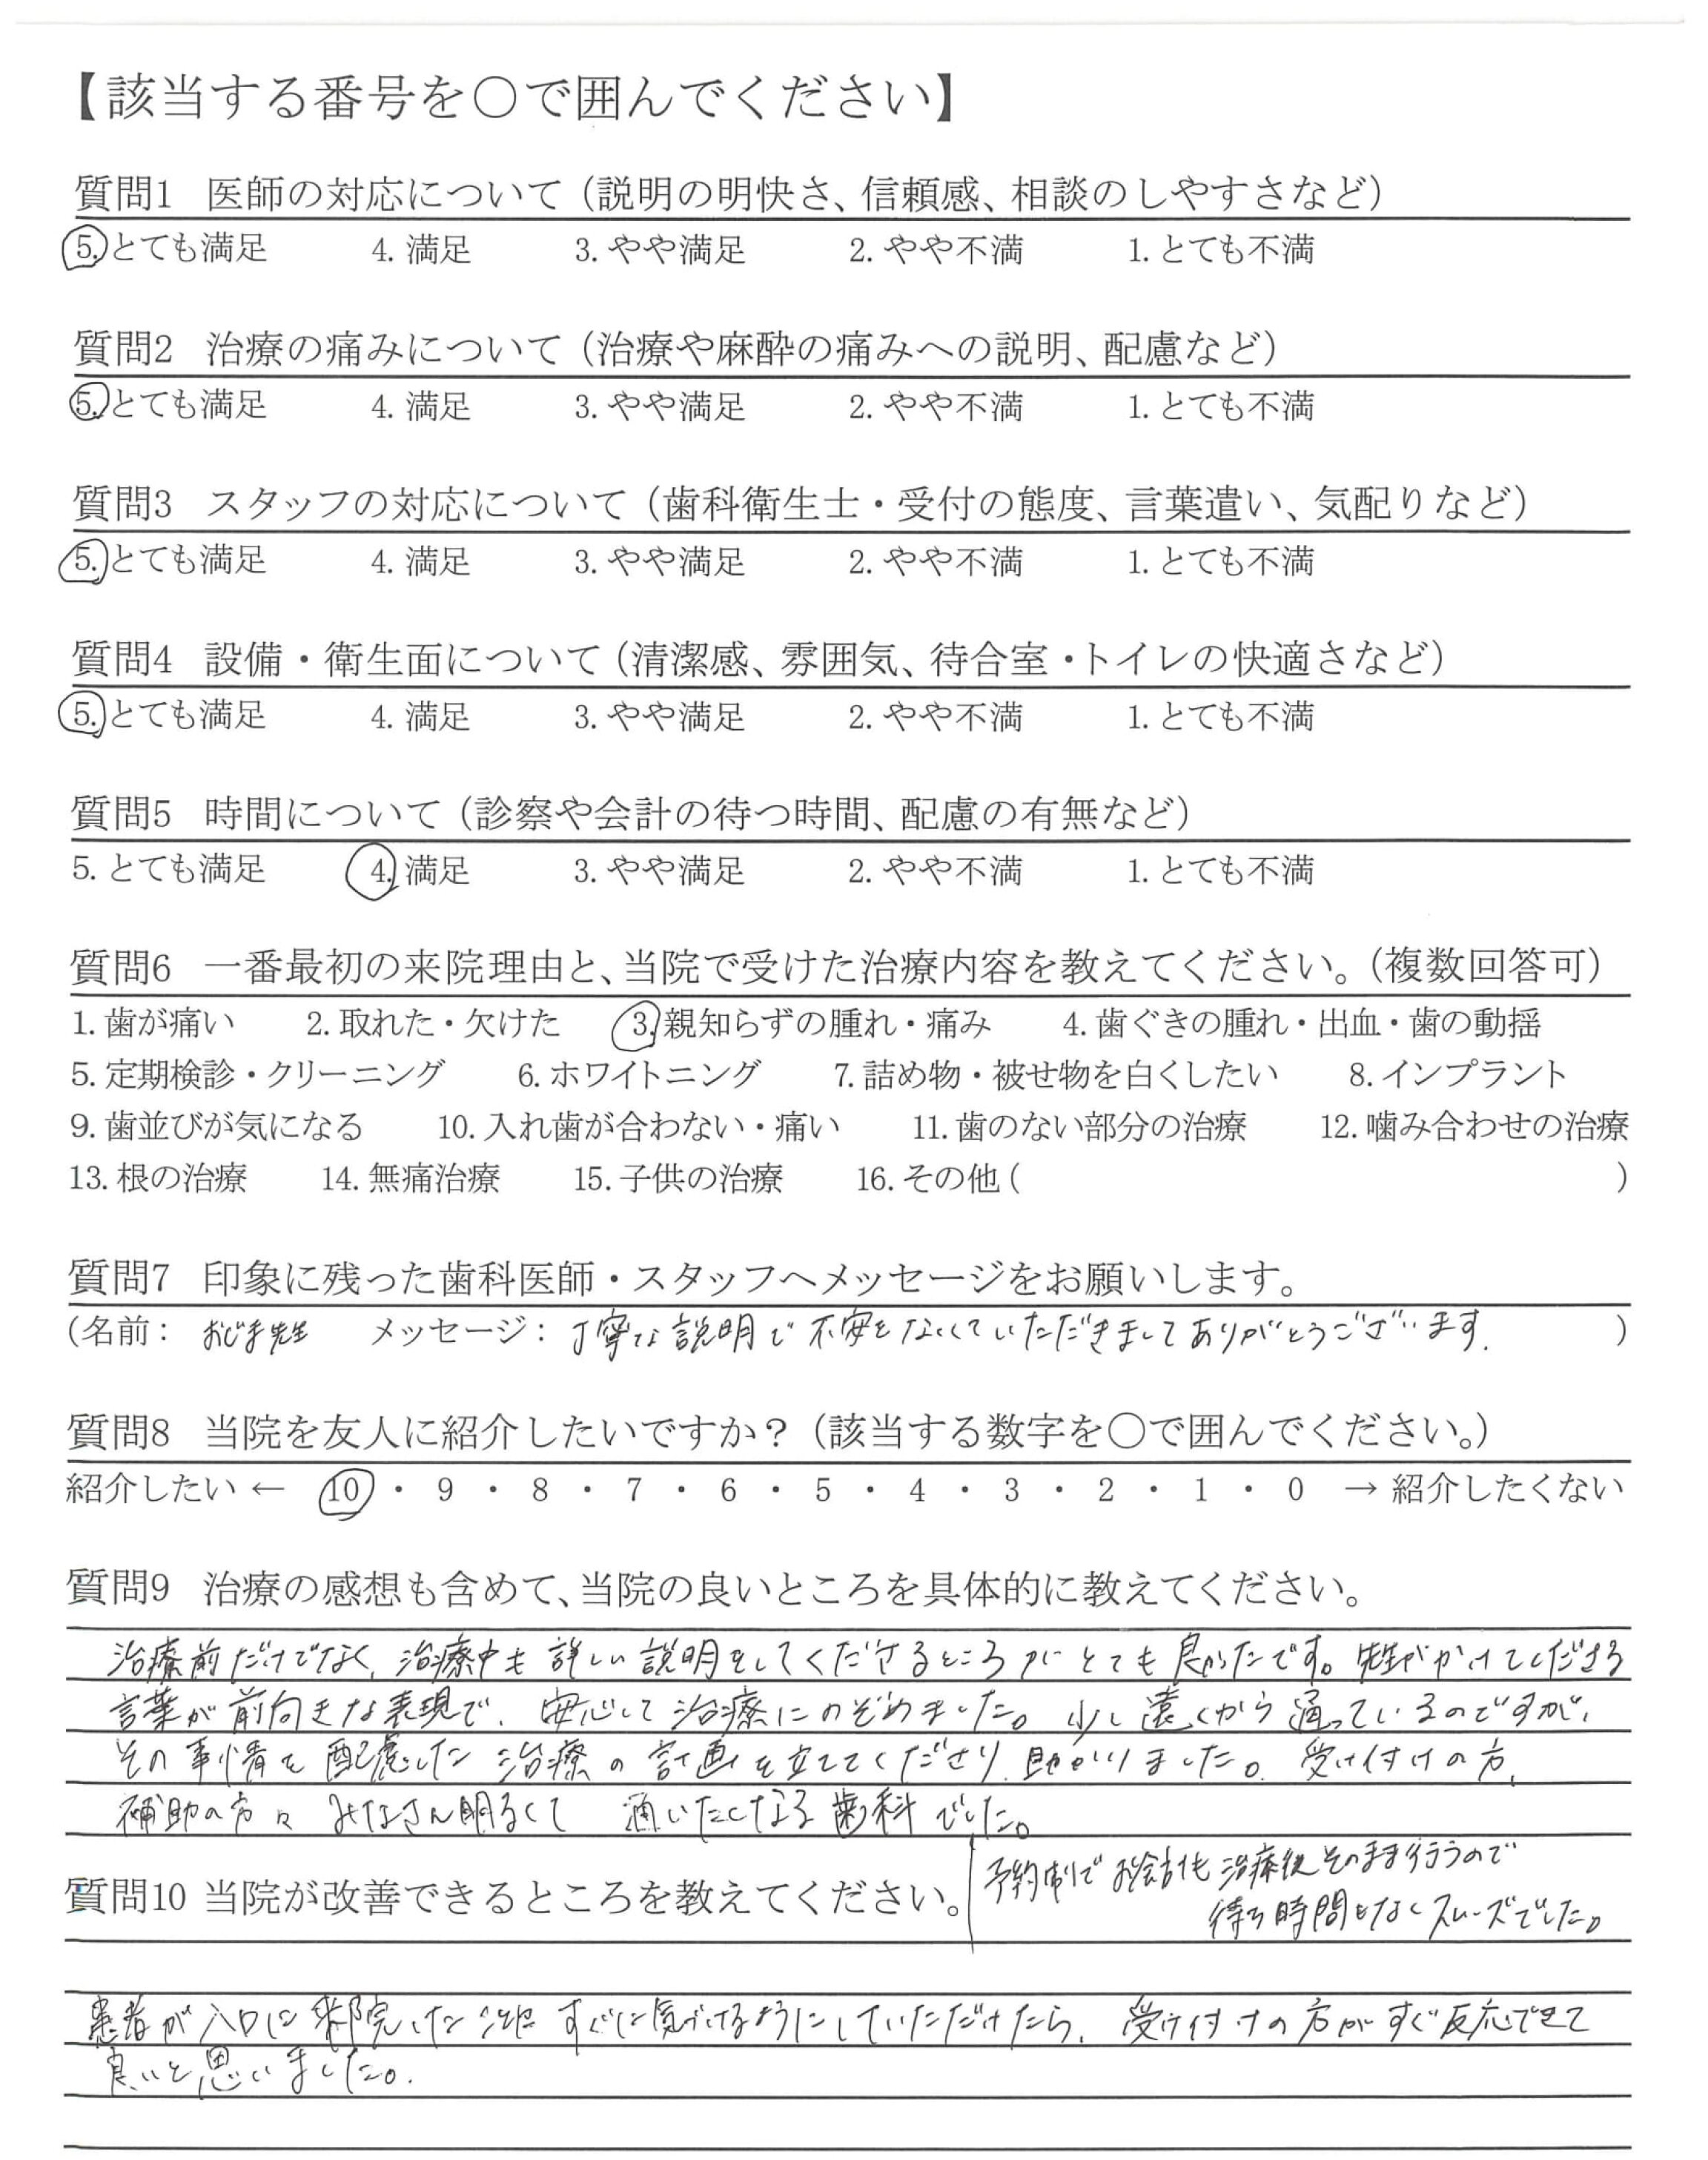 【該当する番号を〇で囲んでください】
質問1 医師の対応について（説明の明快さ、信頼感、相談のしやすさなど）
5. とても満足 4. 満足 3. やや満足 2. やや不満 1. とても不満
質問2 治療の痛みについて（治療や麻酔の痛みへの説明、配慮など）
5. とても満足 4. 満足 3. やや満足 2. やや不満 1. とても不満
質問3 スタッフの対応について（歯科衛生士・受付の態度、言葉遣い、気配りなど）
5. とても満足 4. 満足 3. やや満足 2. やや不満 1. とても不満
質問4 設備・衛生面について（清潔感、雰囲気、待合室・トイレの快適さなど）
5. とても満足 4. 満足 3. やや満足 2. やや不満 1. とても不満
質問5 時間について（診察や会計の待つ時間、配慮の有無など）
5. とても満足 4. 満足 3. やや満足 2. やや不満 1. とても不満
質問6 一番最初の来院理由と、当院で受けた治療内容を教えてください。（複数回答可）
1. 歯が痛い 2. 取れた・欠けた 3. 親知らずの腫れ・痛み 4. 歯ぐきの腫れ・出血・歯の動揺
5. 定期検診・クリーニング 6. ホワイトニング 7. 詰め物・被せ物を白くしたい 8. インプラント
9. 歯並びが気になる 10. 入れ歯が合わない・痛い 11. 歯のない部分の治療 12. 噛み合わせの治療
13. 根の治療 14. 無痛治療 15. 子供の治療 16. その他（ ）
質問7 印象に残った歯科医師・スタッフへメッセージをお願いします。
（名前： おじま先生 メッセージ： 丁寧な説明で不安をなくしていただきましてありがとうございます. ）
質問8 当院を友人に紹介したいですか？（該当する数字を〇で囲んでください。）
紹介したい ← 10 ・ 9 ・ 8 ・ 7 ・ 6 ・ 5 ・ 4 ・ 3 ・ 2 ・ 1 ・ 0 → 紹介したくない
質問9 治療の感想も含めて、当院の良いところを具体的に教えてください。
治療前だけでなく、治療中も詳しい説明をしてくださるところがとても良かったです。先生がかけてくださる
言葉が前向きな表現で、安心して治療にのぞめました。少し遠くから通っているのですが、
その事情を配慮した治療の計画を立ててくださり、助かりました。受け付けの方、
補助の方々みなさん明るくて通いたくなる歯科でした。
予約制でお会計も治療後そのまま行うので
待ち時間もなくスムーズでした。
質問10 当院が改善できるところを教えてください。
患者が入口に来院した際すぐに気づけるようにしていただけたら、受け付けの方がすぐ反応できて
良いと思いました。